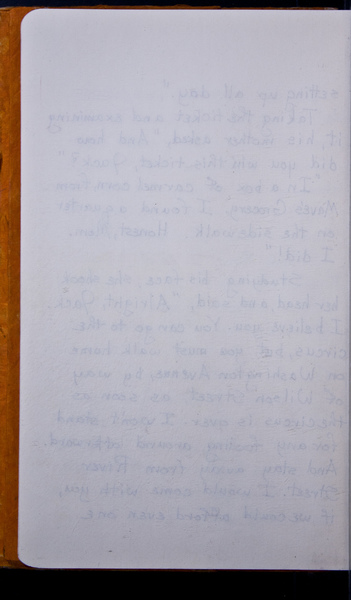 setting up all day."
Taking the ticket and examining
it, his mother asked, "And how
did you win this ticket, Jack?"
"In a box of carmel corn from
I found a quarter
on the sidewalk. Honest, Mom.
I did!"
Studying his face, she shook
her head and said, "Alright, Jack.
I believe you. You can go to the
circus, but you must walk home
on Washington Avenue, by way
of Wilson Street as soon as
the circus is over. I won't stand
for any fooling around afterward.
And stay away from River
Street. I would come with you,
if we could afford even one